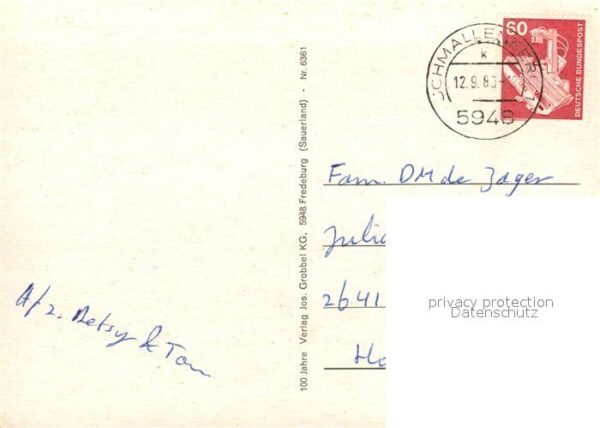 60
DEUTSCHE BUNDESPOST
SCHMALLENBERG 1
K
12.9.83
5948
100 Jahre Verlag Jos. Grobbel KG, 5948 Fredeburg (Sauerland) - Nr. 6361
Fam. DM de Jager
Julia
2641
Ho
privacy protection
Datenschutz
A/z. Betsy & Ton